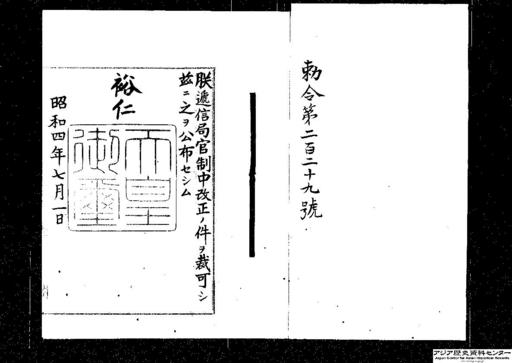 勅令第二百二十九號
朕遞信局官制中改正ノ件ヲ裁可シ
茲ニ之ヲ公布セシム
裕仁
天皇
御璽
昭和四年七月一日
アジア歴史資料センター
Japan Center for Asian Historical Records